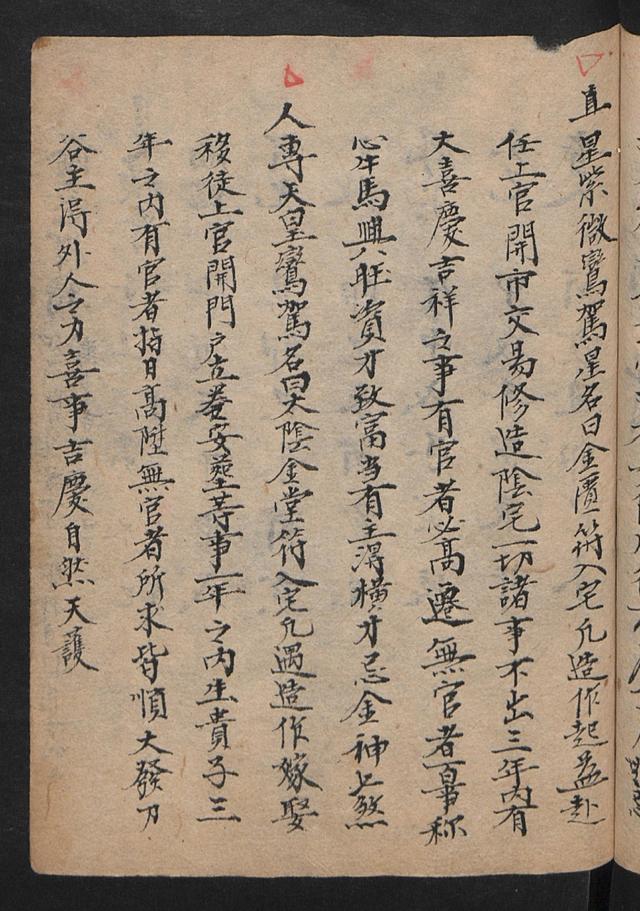 直星紫微鸞駕星名曰金匱符入宅凡造作起盖赴
任上官開市交易修造陰宅一切諸事不出三年内有
大喜慶吉祥之事有官者必高遷無官者百事称
心牛馬興旺資才致富当有主得横才忌金神七煞
人專天皇鸞駕名曰太陰金堂符入宅凡遇造作嫁娶
移徒上官開門户立菴安塟等事一年之内生貴子三
年之内有官者指日高陞無官者所求皆順大發刀
谷主得外人之力喜事吉慶自然天護